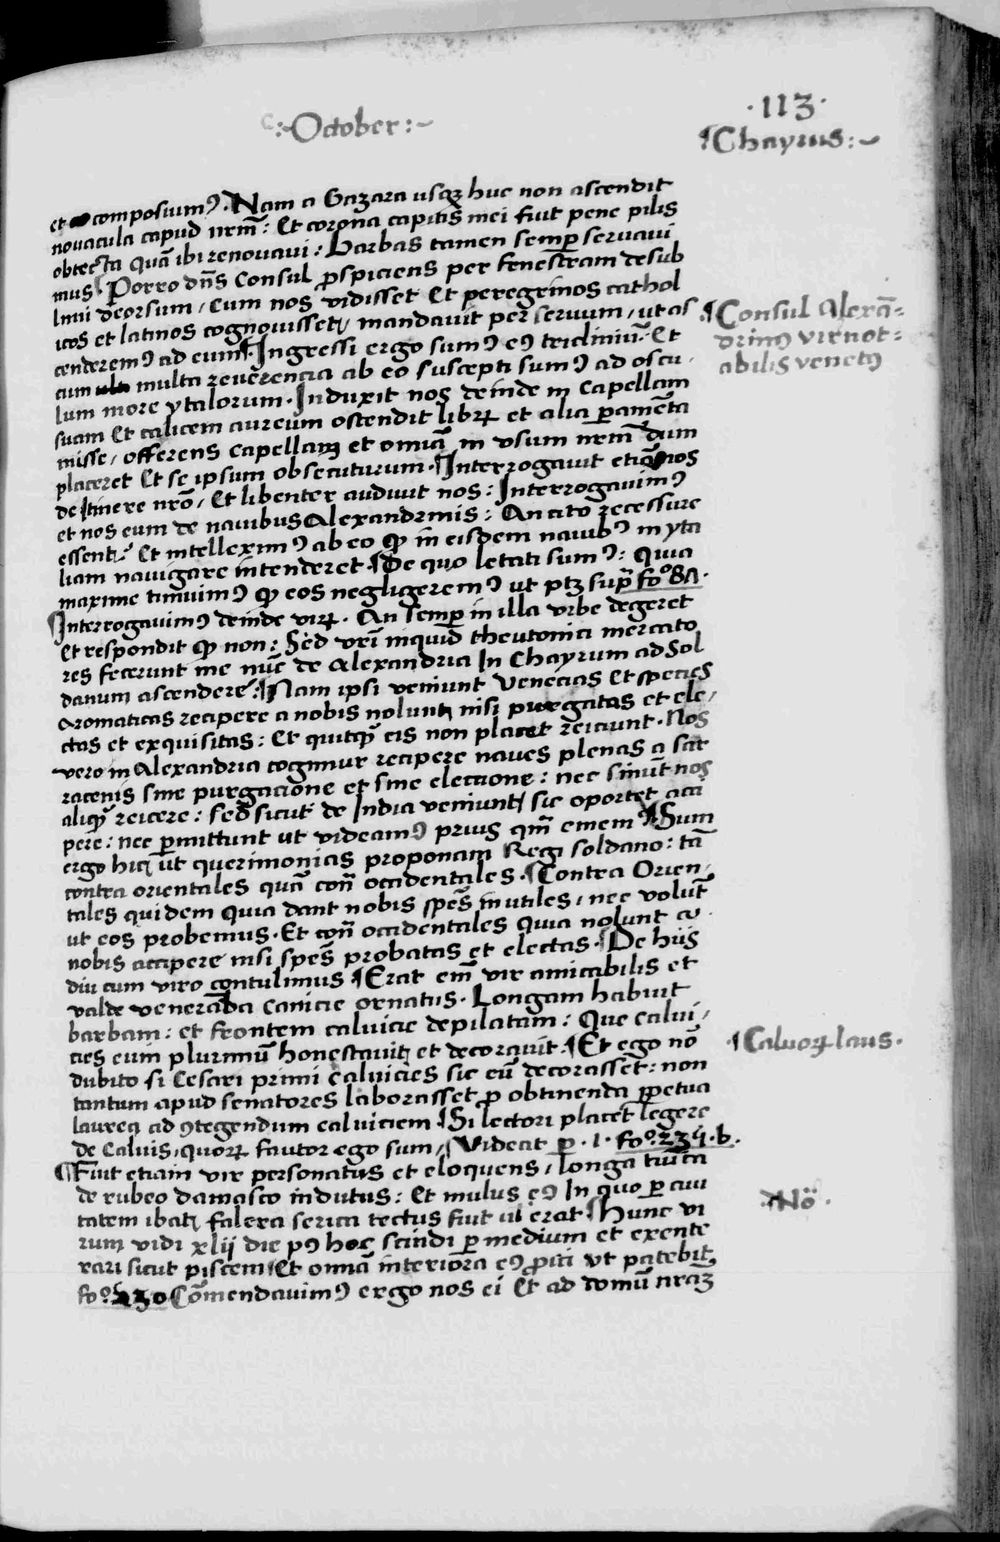 ·:~October:~
·113·
¶Chayrus:~
et composuimꝰ. Nam a Gazara usqꝫ huc non ascendit
novacula capud nr̄m: Et corona capitis mei fuit pene pilis
obtecta quā ibi renovavi: Barbas tamen semꝑ servavi
mus ¶Porro dn̄s Consul ꝓspiciens per fenestram de sub
limi deorsum / Cum nos vidisset Et peregrinos cathol
icos et latinos cognovisset / mandavit per servum / ut as
cenderemꝰ ad eum ¶Ingressi ergo sumꝰ eꝰ triclinium. Et
cum multa reverencia ab eo suscepti sumꝰ ad oscu
lum more ytalorum. Induxit nos deinde in capellam
suam Et calicem aureum ostendit libꝝ et alia ꝑamēta
misse / offerens capellam et omīa in vsum nr̄m dum
placeret Et se ipsum obsecuturum. ¶Interrogavit etiā nos
de Itinere nr̄o / Et libenter audivit nos: Interrogavimꝰ
et nos eum de navibus Alexandrinis: An cito recessure
essent? Et intelleximꝰ ab eo ꝙ in eisdem navibꝰ in yta
liam navigare intenderet ¶De quo letati sumꝰ: Quia
maxime timuimꝰ ꝙ eos negligeremꝰ ut ptꝫ sup̄ fo. 8A.
¶Interrogavimꝰ deinde viꝝ. An semꝑ in illa vrbe degeret
Et respondit ꝙ non: Sed vr̄i inquid theutonici mercato
res fecerunt me nūc de Alexandria In Chayrum ad Sol
danum ascendere. ¶Nam ipsi veniunt Venecias Et species
aromaticas recipere a nobis nolunt nisi purgatas et ele /
ctas et exquisitas: Et quitqꝫ eis non placet reiciunt. Nos
vero in Alexandria cogimur recipere naves plenas a sar
racenis sine purgacione et sine electione: nec sinūt nos
aliqꝫ reicere: sed sicut de India veniunt / sic oportet acci
pere: nec ꝑmittunt ut videamꝰ prius qm̄ ememꝰ ¶Sum
ergo hic ut querimonias proponam Regi soldano: tā
contra orientales quā con̄ occidentales. ¶Contra Orien /
tales quidem quia dant nobis spēs inutiles / nec volūt
ut eos probemus. Et con̄ occidentales Quia nolunt a
nobis accipere nisi spēs probatas et electas. ¶De hijs
diu cum viro contulimus ¶Erat em̄ vir amicabilis et
valde veneranda canicie ornatus. Longam habuit
barbam: et frontem calvicie depilatam: Que calvi /
cies eum plurimū honestavit et decoravit. ¶Et ego nō
dubito si Cesari primi calvicies sic eū decorasset: non
tantum apud senatores laborasset ꝓ obtinenda ꝑpetua
laurea ad ꝯtegendum calviciem ¶Si lectori placet legere
de Calvis, quoꝝ fautor ego sum / ¶Videat ꝑ. 1. fo. 234. b.
¶Fuit etiam vir personatus et eloquens / longa tunica
de rubeo damasco indutus: Et mulus eꝰ In quo ꝑ civi
tatem ibat falera serica tectus fuit ¶Hunc vi
rum vidi xlij die pꝰ hoc scindi ꝑ medium et exente
rari sicut piscem / Et omīa interiora eꝰ ꝓici ut patebit
fo. 130 Cōmendavimꝰ ergo nos ei Et ad domū nrāꝫ
¶Consul Alexā=
drinꝰ vir not=
abilis venetꝰ
¶Calvoꝝ laus.
Nō.